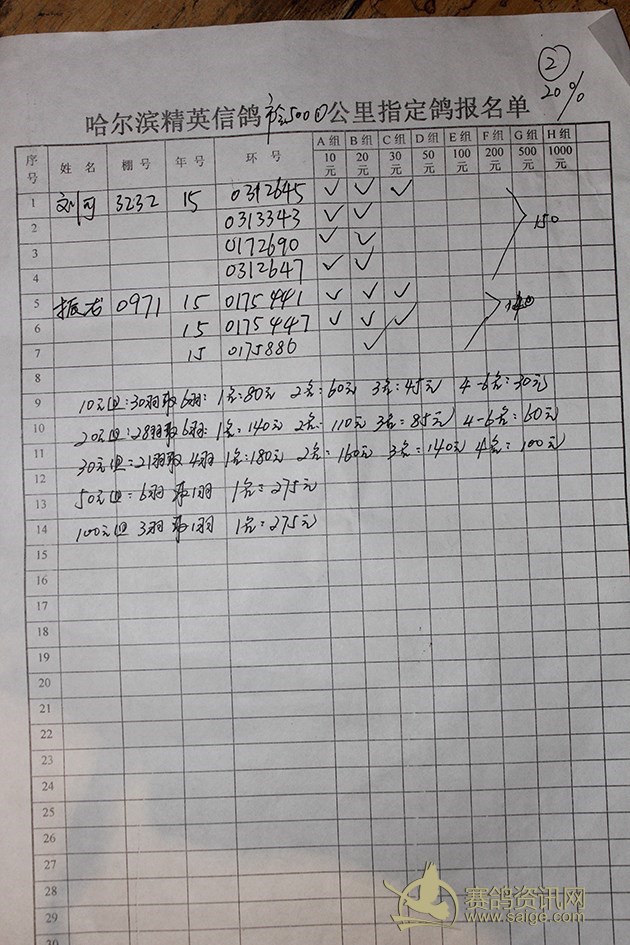 ②
20%
哈尔滨精英信鸽 500 公里指定鸽报名单
序号 姓名 棚号 年号 环号 A组 B组 C组 D组 E组 F组 G组 H组
10元 20元 30元 50元 100元 200元 500元 1000元
1 刘可 3232 15 0312645 ✓ ✓ ✓
2 0313343 ✓ ✓
150
3 0172690 ✓ ✓
4 0312647 ✓ ✓
5 0971 15 0175441 ✓ ✓ ✓
6 15 0175447 ✓ ✓ ✓
7 15 0175886 ✓
8
9 10元组:30羽取6羽: 1名:80元 2名:60元 3名:45元 4-6名:30元
10 20元组:28羽取6羽: 1名:140元 2名:110元 3名:85元 4-6名:60元
11 30元组:21羽取4羽 1名:180元 2名:160元 3名:140元 4名:100元
12
13 50元组:6羽取1羽 1名:275元
14 100元组 3羽取1羽 1名:275元
15
16
17
18
19
20
21
22
23
24
25
26
27
28
29
30
赛鸽资讯网
www.saige.com